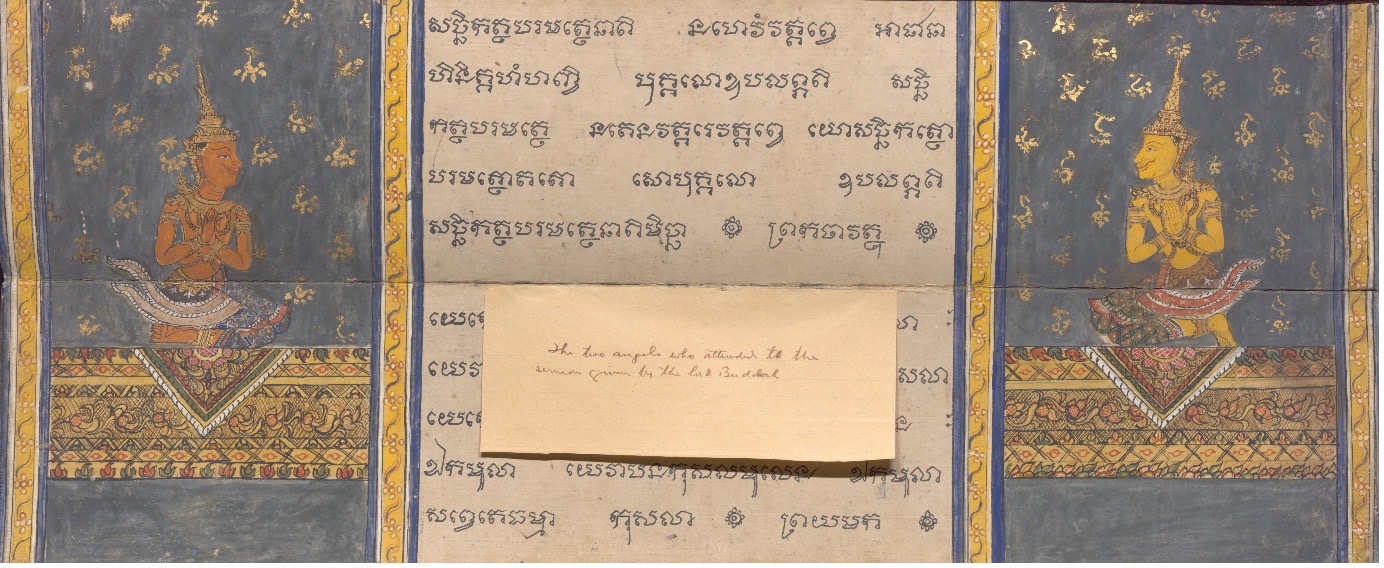 សច្ឆិកត្ថបរមត្ថេនាតិ នហេវំវត្តព្វេ អាជានា
ហិនិគ្គហំហញ្ចិ បុគ្គលោឧបលព្ភតិ សច្ឆិ
កត្ថបរមត្ថេ នតេនវត្តរេវត្តព្វេ យោសច្ឆិកត្ថោ
បរមត្ថោតតោ សោបុគ្គលោ ឧបលព្ភតិ
សច្ឆិកត្ថបរមត្ថេនាតិមិច្ឆា ព្រកថាវត្ថុ
The two angels who attended to the
sermon given by the lord Buddah
ឯកមូលា យេវាបនកុសលមូលេន ឯកមូលា
សព្វេតេធម្មា កុសលា ព្រយមក